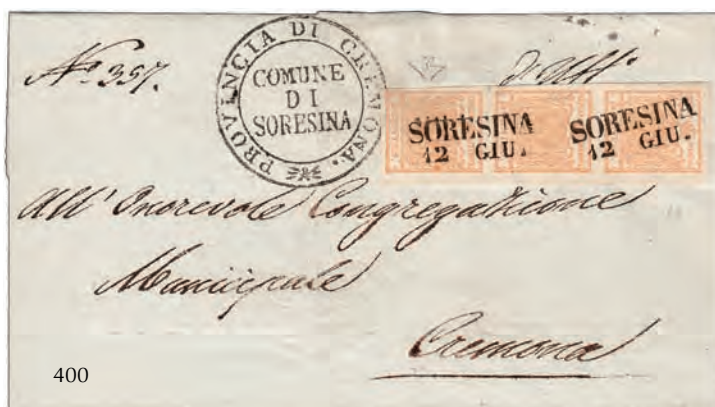 N.° 357.
PROVINCIA DI CREMONA.
COMUNE
DI
SORESINA
d'Uff.
SORESINA
12 GIU.
SORESINA
12 GIU.
All' Onorevole Congregazione
Municipale
Cremona
400